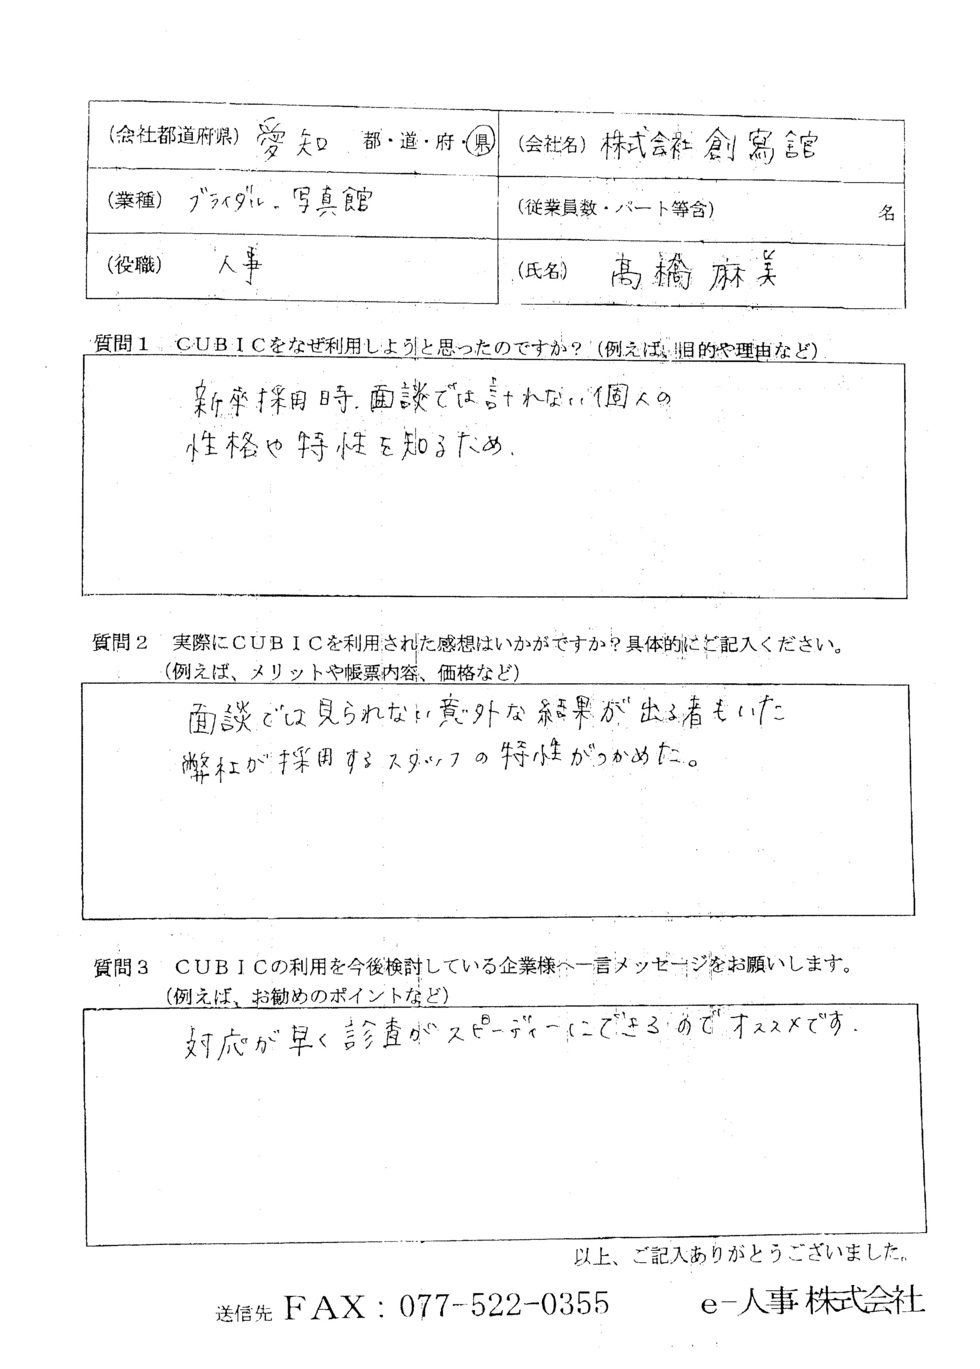 (会社都道府県) 愛知 都・道・府・県
(会社名) 株式会社 創寫舘
(業種) ブライダル・写真館
(従業員数・パート等含) 名
(役職) 人事
(氏名) 高橋 麻美
質問1 CUBICをなぜ利用しようと思ったのですか?(例えば、目的や理由など)
新卒採用時、面談では計れない個人の
性格や特性を知るため、
質問2 実際にCUBICを利用された感想はいかがですか?具体的にご記入ください。
(例えば、メリットや帳票内容、価格など)
面談では見られない意外な結果が出る者もいた
弊社が採用するスタッフの特性がつかめた。
質問3 CUBICの利用を今後検討している企業様へ一言メッセージをお願いします。
(例えば、お勧めのポイントなど)
対応が早く診査がスピーディーにできるのでオススメです.
以上、ご記入ありがとうございました。
送信先 FAX:077-522-0355 e-人事株式会社